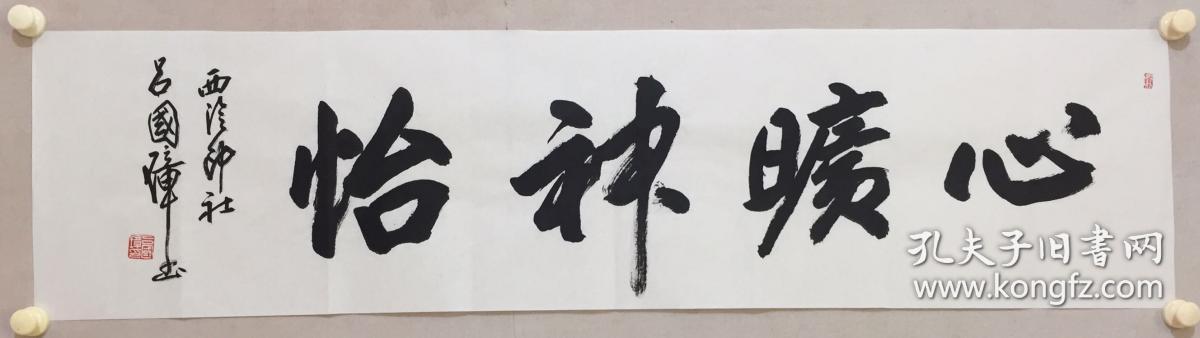 心曠神怡
西泠印社
吕國璋书
孔夫子旧书网
www.kongfz.com